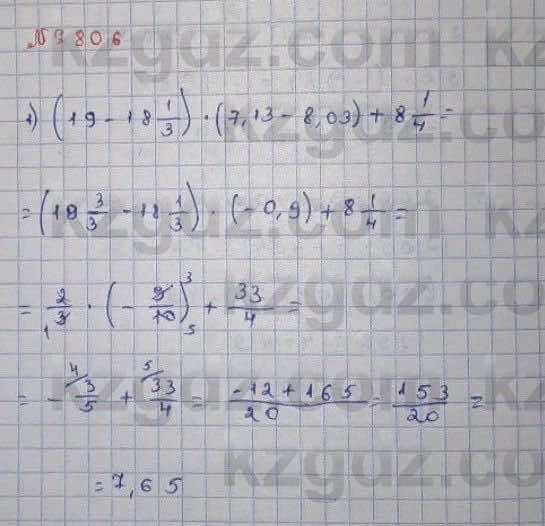 № 806
1) (19 - 18 1/3) · (7,13 - 8,03) + 8 1/4 =
= (18 3/3 - 18 1/3) · (-0,9) + 8 1/4 =
= 2/3 · (- 9/10) + 33/4 =
= - 3/5 + 33/4 = -12 + 165/20 = 153/20 =
= 7,65
kzgdz.com